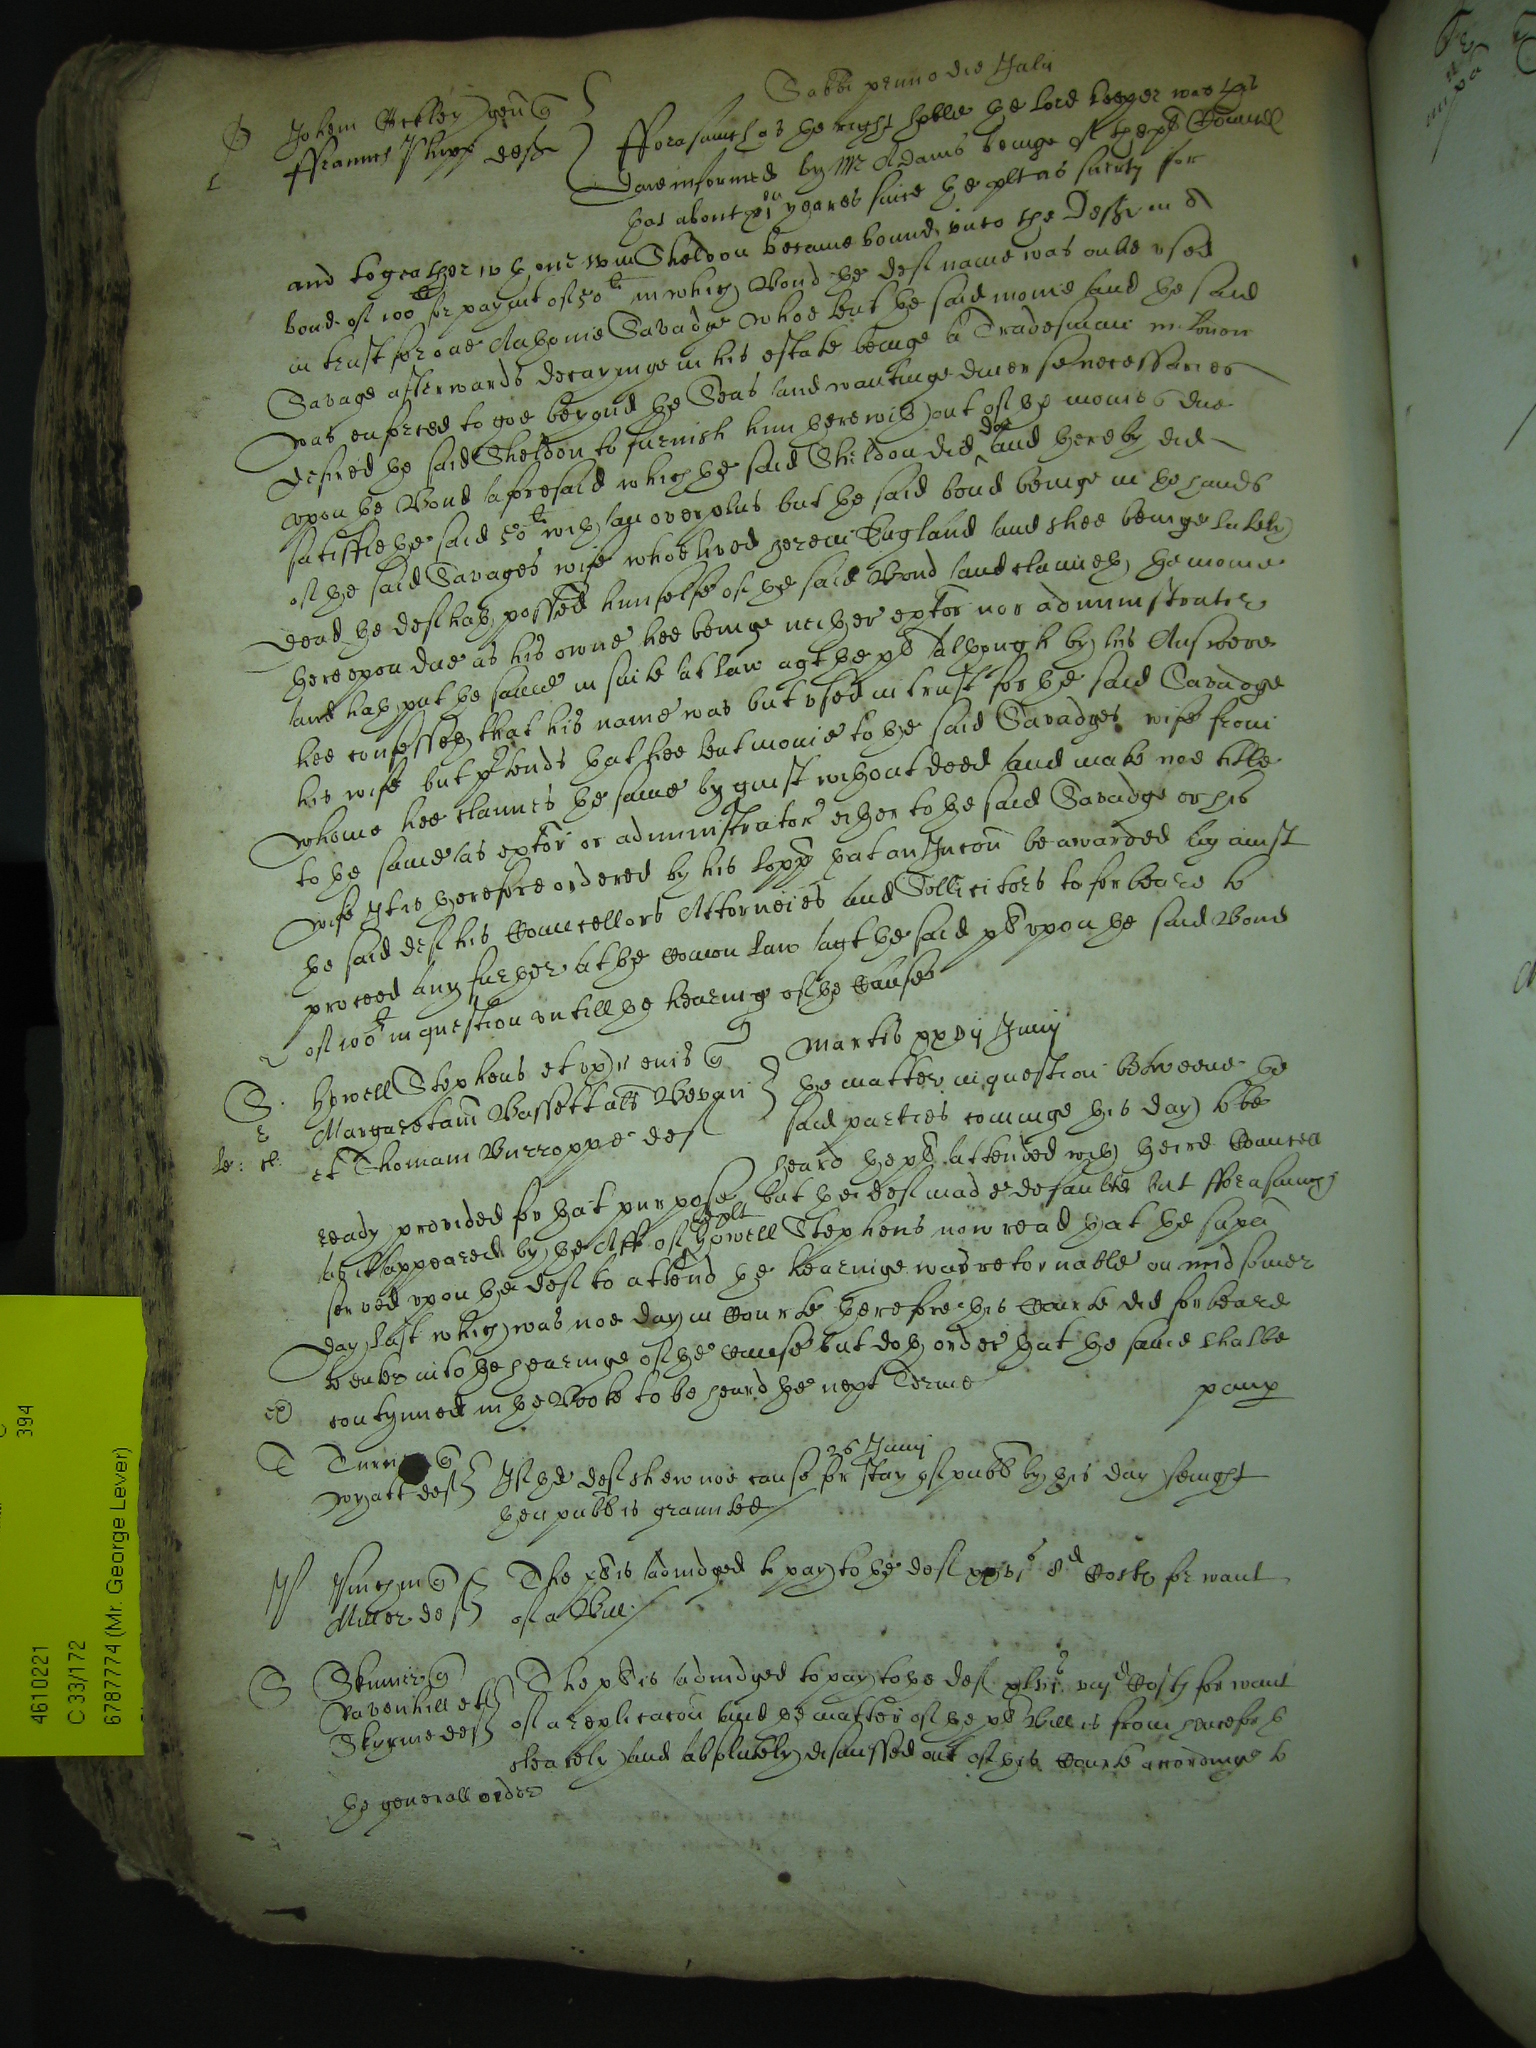 Sabbi primo die Julii
Johem Ockley gen q
Ffrancus Phipps deft
Fforasmuch as the right hoble the lord keeper was this
daie informed by Mr Adams beinge of the pls Councell
that about xien yeares since the plt as suerty for
and togeather wth one Wm Sheldon became bounde unto the Deft in a
bond of 100li for paymt of 50li in which Bond the deft name was onlie used
in trust for one Anthonie Savadge whoe lent the said monie and the said
Savage afterwards decayinge in his estate beinge a Tradesman in London
was enforced to goe beyond the Seas and wantinge diverse necessaries
desired the said Sheldon to furnish him therewith out of the monies due
upon the Bond aforesaid which the said Sheldon did doe and thereby did
satisfie the said 50li with an overplus but the said bond beinge in the hands
of the said Savages wife whoe lived here in England and shee beinge lately
dead the deft hath possed himselfe of the said Bond and claimeth the monie
thereupon due as his owne hee beinge neither exetor nor administrator
and hath put the same in suite at law agt the pls although by his Answere
hee confesseth that his name was but used in trust for the said Savadge
his wife but ptends that hee lent monie to the said Savadges wife from
whome hee claimes the same by guift without deed and make noe title
to the same as exetor or administrator either to the said Savadge or his
wife It is therefore ordered by his lopp that an Iniuncon be awarded against
the said deft his Councellors Attorneies and Sollicitors to forbeare to
proceed any further at the Comon law agt the said pls upon the said Bond
of 100li in question untill the hearing of the Cause
Martis xxvij Junij
S. Howell Stephens et ux quer
Margaretam Bassett als Bevan
et Thomam Burroppe def
The matter in question betweene the
said parties cominge this day to be
heard the pls attended with theire Councell
ready provided for that purpose but the deft made default but fforasmuch
as it appeared by the Afft of the plt Howell Stephens now read that the sapa
served upon the deft to attend the hearinge was retornable on midsomer
day last which was noe day in Courte therefore this Courte did forbeare
to enter into the hearinge of the cause but doth order that the same shalbe
contynued in the Booke to be heard the next Terme
T q
Wyatt deft
26 Junij
If the deft shew noe cause for stay of publ by this day senight
then publ is graunted
q
deft
The pl is adiudged to pay to the deft xxvis 8d Costs for want
of a Bill.
S Skinner q
Ravenhill et
Skyrme deft
The pl is adiudged to pay to the deft xlvis viijd Costs for want
of a replicacon and the matter of the pls Bill is from henceforth
clearely and absolutely dismissed out of this Courte accordinge to
the generall order
394
4610221
C 33/172
6787774 (Mr. George Lever)